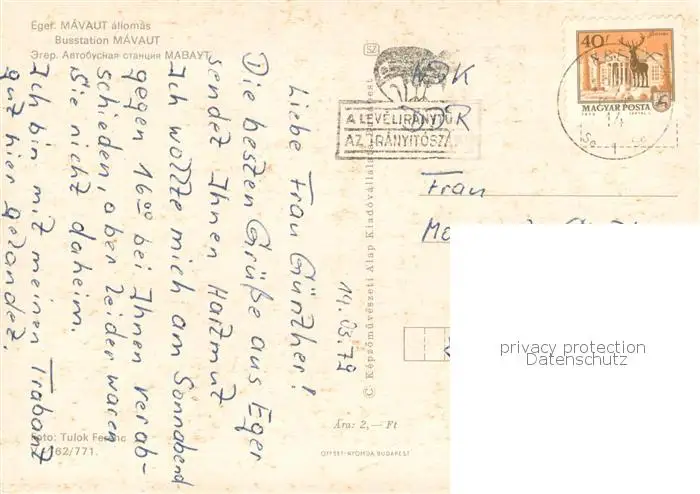 Eger. MÁVAUT állomás
Busstation MÁVAUT
Эгер. Автобусная станция МАВАУТ
14.03.79
Liebe Frau Günther!
Die besten Grüße aus Eger
sendet Ihnen Hartmut
Ich wollte mich am Sonnabend
gegen 16⁰⁰ bei Ihnen verab-
schieden, aber leider waren
Sie nicht daheim.
Ich bin mit meinen Trabant
gut hier gelandet.
Foto: Tulok Ferenc
162/771.
SZ
© Képzőművészeti Alap Kiadóvállalata
Ára: 2,— Ft
OFFSET-NYOMDA BUDAPEST
A LEVÉLIRÁNYTŰ
AZ IRÁNYÍTÓSZÁM
40 f
MAGYAR POSTA
14
DDR
Frau
privacy protection
Datenschutz